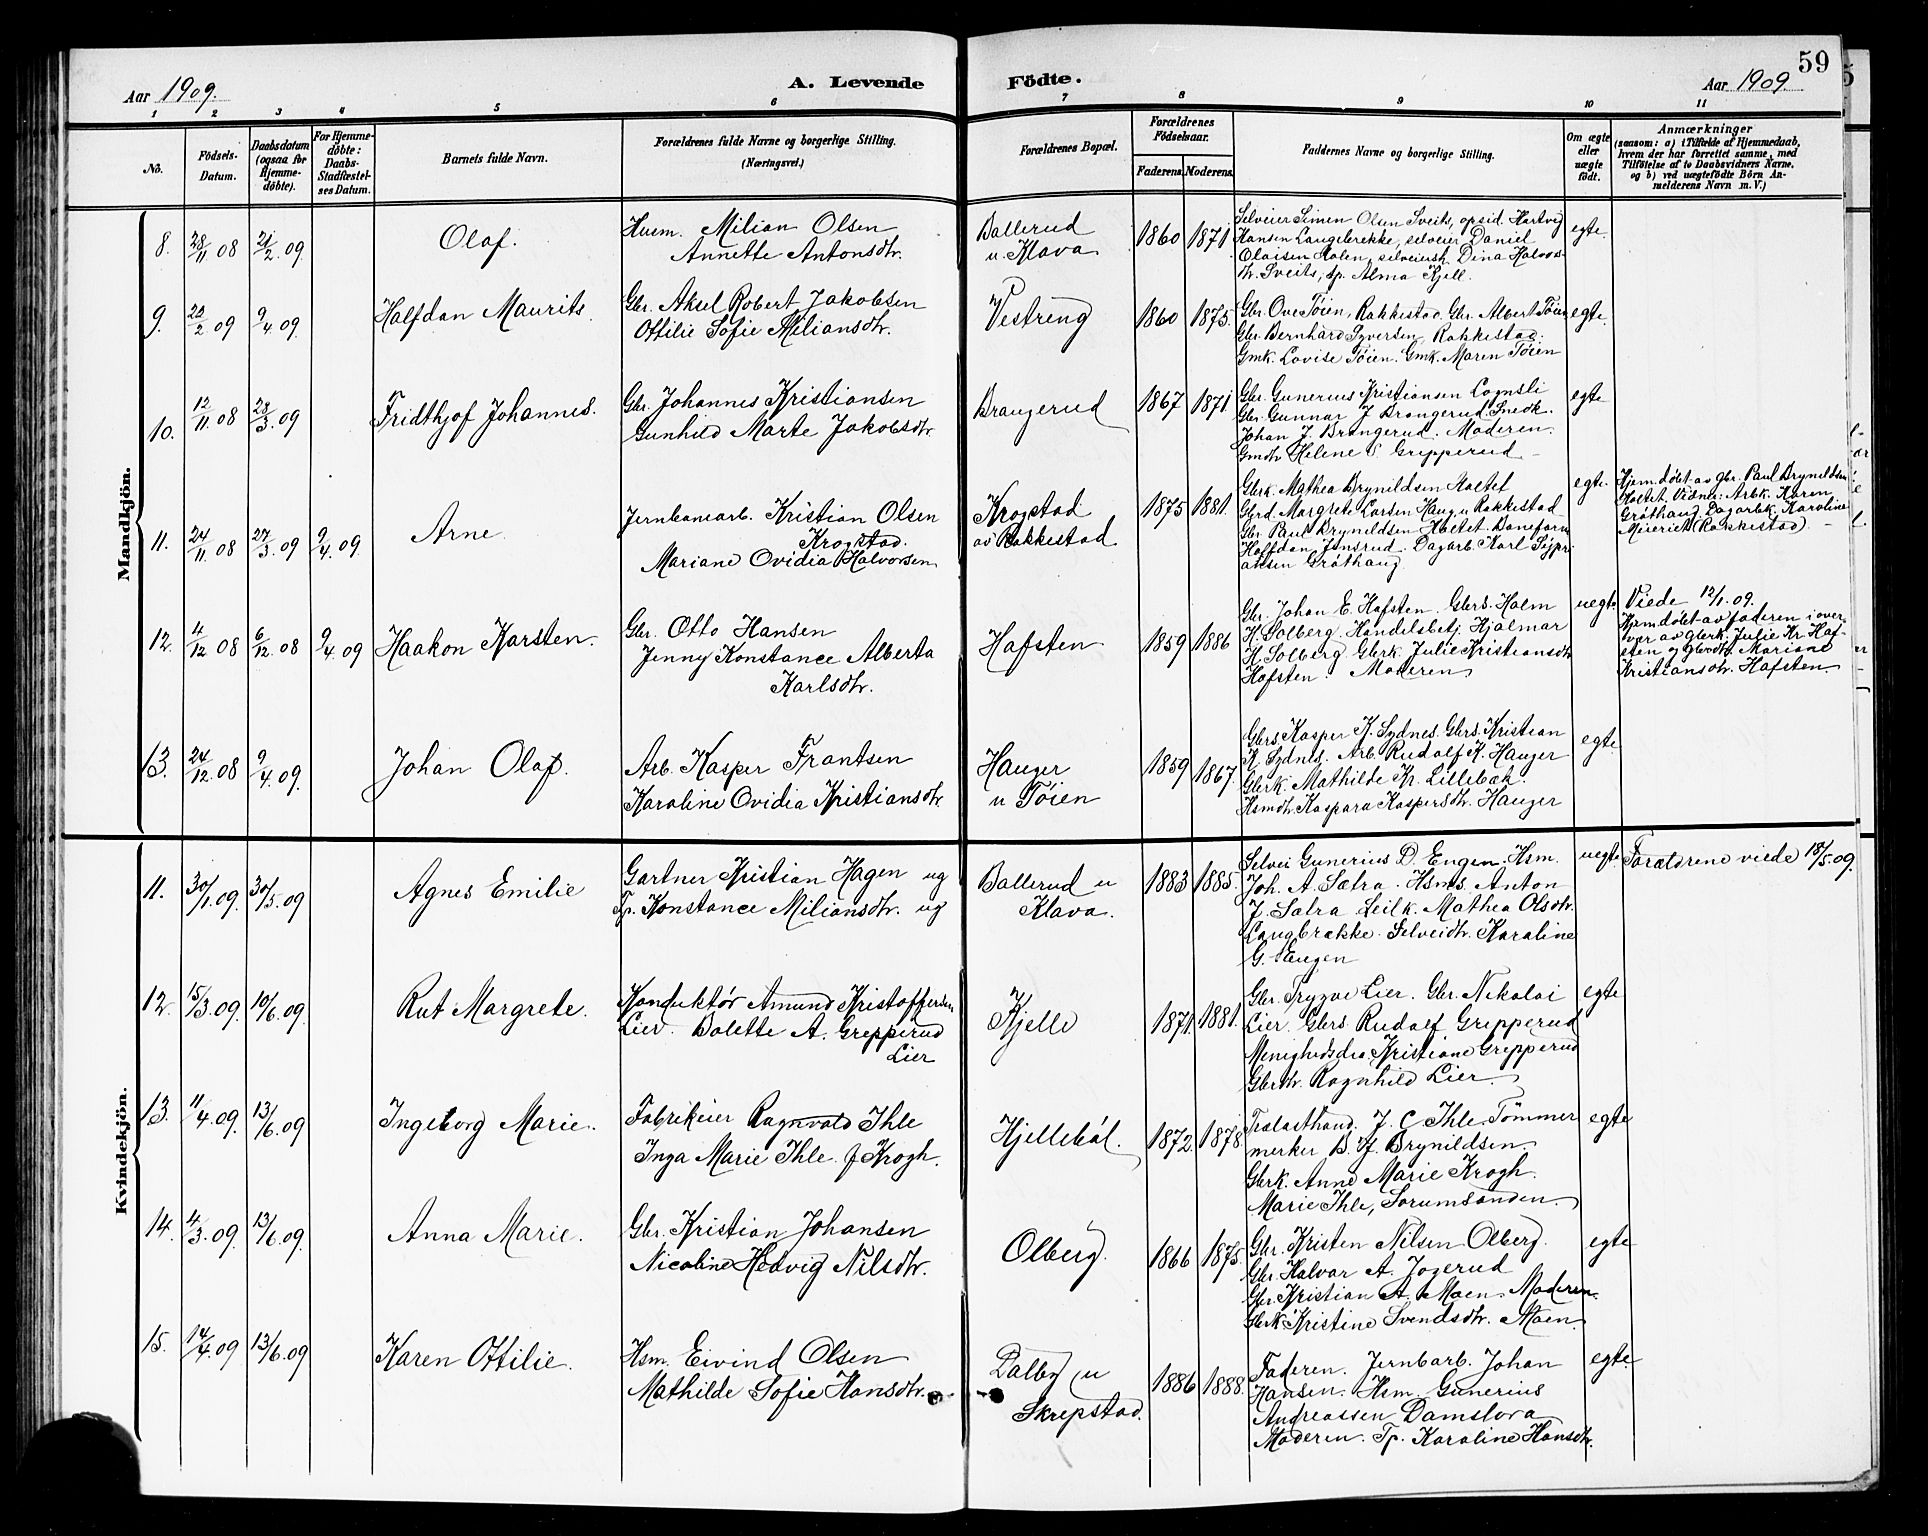 59
Aar 1909.
A. Levende
Födte.
Aar 1909.
1 2 3 4 5 6 7 8 9 10 11
No.
Födsels-
Datum.
Daabsdatum
(ogsaa for
Hjemme-
döbte).
For Hjemme-
döbte:
Daabs-
Stadfæstel-
ses Datum.
Barnets fulde Navn.
Forældrenes fulde Navne og borgerlige Stilling.
(Næringsvei.)
Forældrenes Bopæl.
Forældrenes
Födselsaar.
Faderens Moderens
Faddernes Navne og borgerlige Stilling.
Om ægte
eller
uægte
födt.
Anmærkninger
(saasom: a) i Tilfælde af Hjemmedaab,
hvem der har forrettet samme, med
Tilföielse af to Daabsvidners Navne,
og b) ved uægtefödte Börn An-
melderens Navn m. V.)
Mandkjön.
8. 28/11 08 21/2 09 Olaf.
Husm. Milian Olsen
Annette Antonsdtr.
Ballerud
u. Klava
1860 1871
Selveier Simen Olsen Sveits, opsid. Hartvig
Hansen Langebrekke, selveier Daniel
Olaisen Holen, selveiersk. Dina Halvors-
dtr. Sveits, tp. Alma Kjell.
egte.
9. 22/2 09 9/4 09. Halfdan Maurits.
Gbr. Aksel Robert Jakobsen
Ottilie Sofie Miliansdtr.
Vestreng
1860 1875.
Gbr. Ove Töien, Rakkestad. Gbr. Albert Töien
Gbr. Bernhard Syversen, Rakkestad.
Gmk. Lovise Töien. Gmk. Maren Töien
egte.
10. 12/11 08 28/3 09 Fridthjof Johannes.
Gbr. Johannes Kristiansen
Gunhild Marte Jakobsdtr.
Brangerud
1867 1871
Gbr. Gunerius Kristiansen Lognsli
Gbr. Gunnar J Brangerud. Snedk.
Johan J. Brangerud. Moderen.
Gmdtr Helene S. Gripperud
egte
11. 24/11 08 27/3 09 9/4 09. Arne
Jernbanearb. Kristian Olsen
Krogstad.
Mariane Ovidia Halvorsen
Krogstad
av Rakkestad
1875 1881.
Gbrk. Mathea Brynildsen Holtet
Gbrd. Margrete Larsen Haug, u Rakkestad
Gbr. Paul Brynildsen Holtet. Baneform
Halfdan Jonsrud. Dagarb. Karl Sijpr-
iansen Gråthaug
egte.
Hjem. döbt av gbr. Paul Brynildsen
Holtet. Vidne: Arbk. Karen
Gråthaug, Dagarbk. Karoline
Meieriet (Rakkestad).
12. 11/12 08 6/12 08 9/4 09 Haakon Karsten.
Gbr. Otto Hansen
Jenny Konstance Alberta
Karlsdtr.
Hafsten
1859 1886
Gbr. Johan E. Hafsten. Gbrs. Holm
H. Solberg. Handelsbetj. Hjalmar
H. Solberg. Gbrk. Julie Kristiansdtr
Hafsten. Moderen
uegte
Viede 12/1. 09.
Hjemdöbt av faderen i over-
vær av gbrk. Julie Kr. Haf-
sten og gbrdtr. Mariane
Kristiansdtr. Hafsten.
13. 24/12. 08 9/4 09. Johan Olaf.
Arb. Kasper Frantsen
Karoline Ovidia Kristiansdtr
Hauger
u Töien
1859 1867.
Gbrs Kasper K. Sydnes. Gbrs. Kristian
K. Sydnes. Arb. Rudolf K. Hauger
Gbrk. Mathilde Kr. Lillebæk.
Hsmdtr. Kaspara Kaspersdtr. Hauger
egte
Kvindekjön.
11. 30/1. 09. 30/5. 09 Agnes Emilie
Gartner Kristian Hagen ug
Tp. Konstance Miliansdtr. ug
Ballerud u
Klava.
1883 1885.
Selvei Gunerius D. Engen. Hsm.
Joh. A. Sætra. Hsms. Anton
J. Sætra. Leilk. Mathea Olsdtr.
Langbrække. Selveidtr. Karoline
G. Engen
uegte
Forældrene viede 18/5. 09.
12. 15/3. 09. 10/6. 09. Rut Margrete.
Konduktör Amund Kristoffersen
Lier. Bolette A. Gripperud
Lier
Kjelle
1871. 1881.
Gbr. Trygve Lier. Gbr. Nikolai
Lier. Gbrs. Rudolf Gripperud
Menighedsdia. Kristiane Gripperud
Gbrdtr. Ragnhild Lier.
egte
13. 11/4. 09. 13/6. 09 Ingeborg Marie.
Fabrikeier Ragnvald Ihle
Inga Marie Ihle f Krogh.
Kjellebøl.
1872. 1878.
Trælasthand. J. C. Ihle. Tömmer
merker B. H. Brynildsen
Gbrk. Anne Marie Krogh.
Marie Ihle, Sørumsanden.
egte
14. 4/3. 09. 13/6. 09. Anna Marie.
Gbr. Kristian Johansen
Nicoline Hedvig Nilsdtr.
Olberg.
1866 1875.
Gbr. Kristen Nilsen Olberg.
Gbr. Halvor A. Jogerud
Gbr. Kristian A. Moen. Moderen.
Gbrk Kristine Svendsdtr. Moen.
egte
15. 14/4. 09 13/6. 09 Karen Ottilie.
Hsm. Eivind Olsen
Mathilde Sofie Hansdtr.
Dalby u
Skrepstad.
1886 1888.
Faderen. Jernbarb. Johan
Hansen. Hsm. Gunerius
Andreassen Damslora
Moderen. Tp. Karoline Hansdtr.
egte